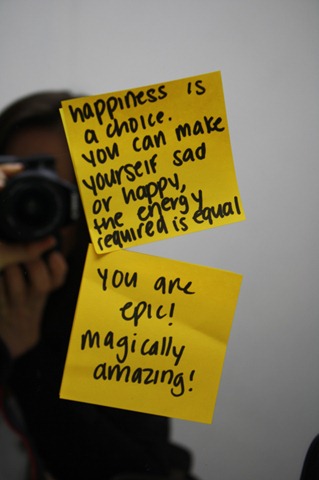 happiness is
a choice.
you can make
yourself sad
or happy,
the energy
required is equal
You are
epic!
magically
amazing!